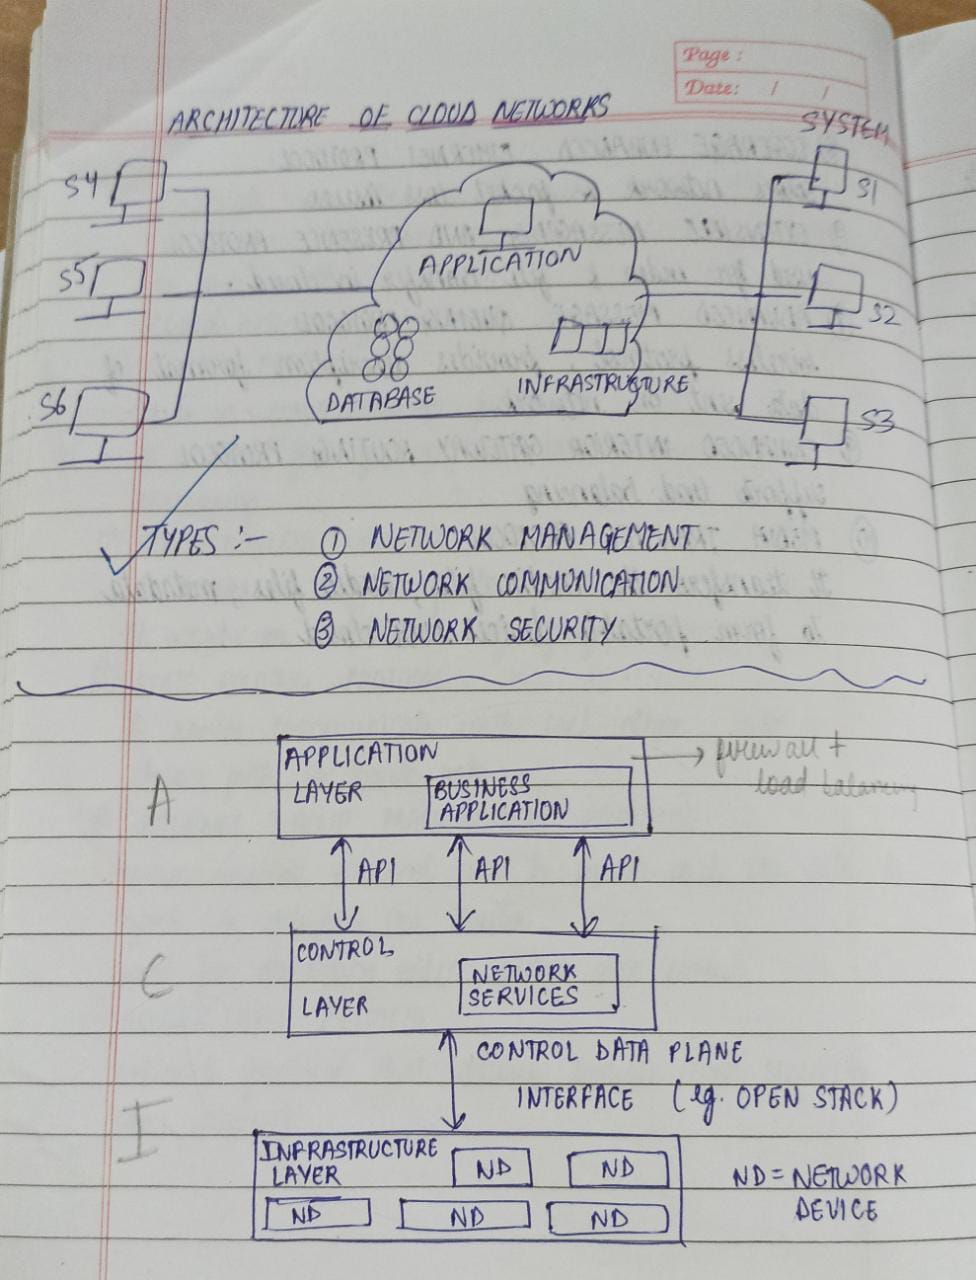 Page:
Date: / /
ARCHITECTURE OF CLOUD NETWORKS
SYSTEM
S4
S1
APPLICATION
S5
S2
INFRASTRUCTURE
DATABASE
S6
S3
TYPES :-
① NETWORK MANAGEMENT
② NETWORK COMMUNICATION
③ NETWORK SECURITY
A
APPLICATION
LAYER
BUSINESS
APPLICATION
firewall +
load balancing
API API API
C
CONTROL
LAYER
NETWORK
SERVICES
CONTROL DATA PLANE
INTERFACE (eg. OPEN STACK)
I
INFRASTRUCTURE
LAYER
ND ND
ND ND ND
ND = NETWORK
DEVICE